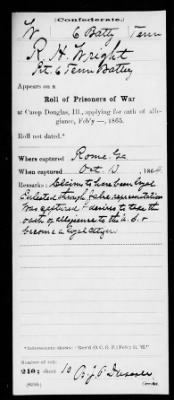 (Confederate.)
W 6 Batty Tenn
R. H. Wright
Pvt. 6 Tenn Battey
Appears on a
Roll of Prisoners of War
at Camp Douglas, Ill., applying for oath of allegiance, Feb'y —, 1865.
Roll not dated.*
Where captured Rome Ga
When captured Oct. 13, 1864
Remarks: Claims to have been loyal
Enlisted through false representations
Was captured & desires to take the
oath of allegiance to the U.S. &
become a loyal citizen
Number of roll:
210; sheet 10